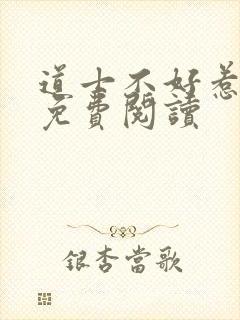 道士不好惹
免費閱讀
銀杏當歌